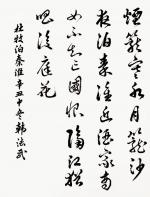 煙籠寒水月籠沙
夜泊秦淮近酒家商
女不知亡國恨隔江猶
唱後庭花
杜牧泊秦淮辛丑中冬韓法武